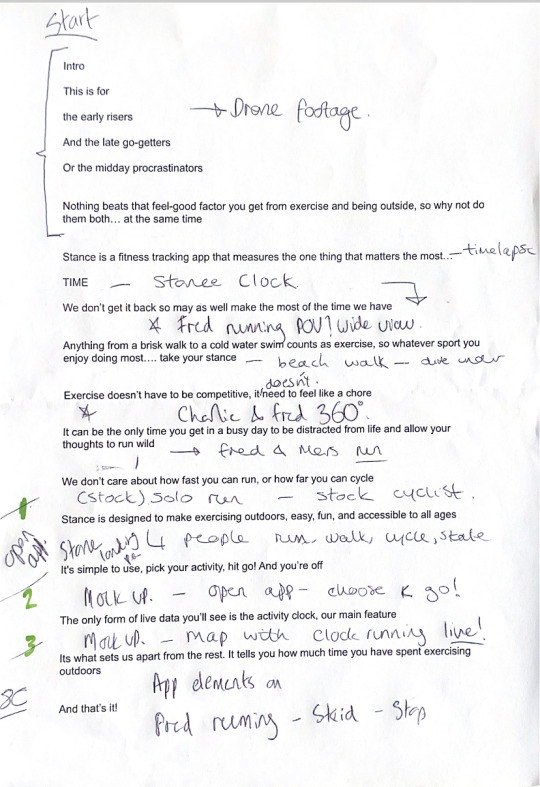 Start
Intro
This is for
the early risers → Drone footage.
And the late go-getters
Or the midday procrastinators
Nothing beats that feel-good factor you get from exercise and being outside, so why not do
them both… at the same time
Stance is a fitness tracking app that measures the one thing that matters the most… – timelapse
TIME – Stance Clock.
We don't get it back so may as well make the most of the time we have
* Fred running POV? Wide view.
Anything from a brisk walk to a cold water swim counts as exercise, so whatever sport you
enjoy doing most…. take your stance – beach walk – dive under
doesn't.
Exercise doesn't have to be competitive, it/need to feel like a chore
* Charlie & fred 360°.
It can be the only time you get in a busy day to be distracted from life and allow your
thoughts to run wild → fred & Mers run
We don't care about how fast you can run, or how far you can cycle
(stock) solo run – stock cyclist.
1
Stance is designed to make exercising outdoors, easy, fun, and accessible to all ages
open app. Stance landing 4 people run, walk, cycle, skate
It's simple to use, pick your activity, hit go! And you're off
2 Mock up. – open app – choose & go!
The only form of live data you'll see is the activity clock, our main feature
3 Mock up. – map with clock running live!
Its what sets us apart from the rest. It tells you how much time you have spent exercising
outdoors
App elements on
And that's it!
Fred running – Skid – Stop